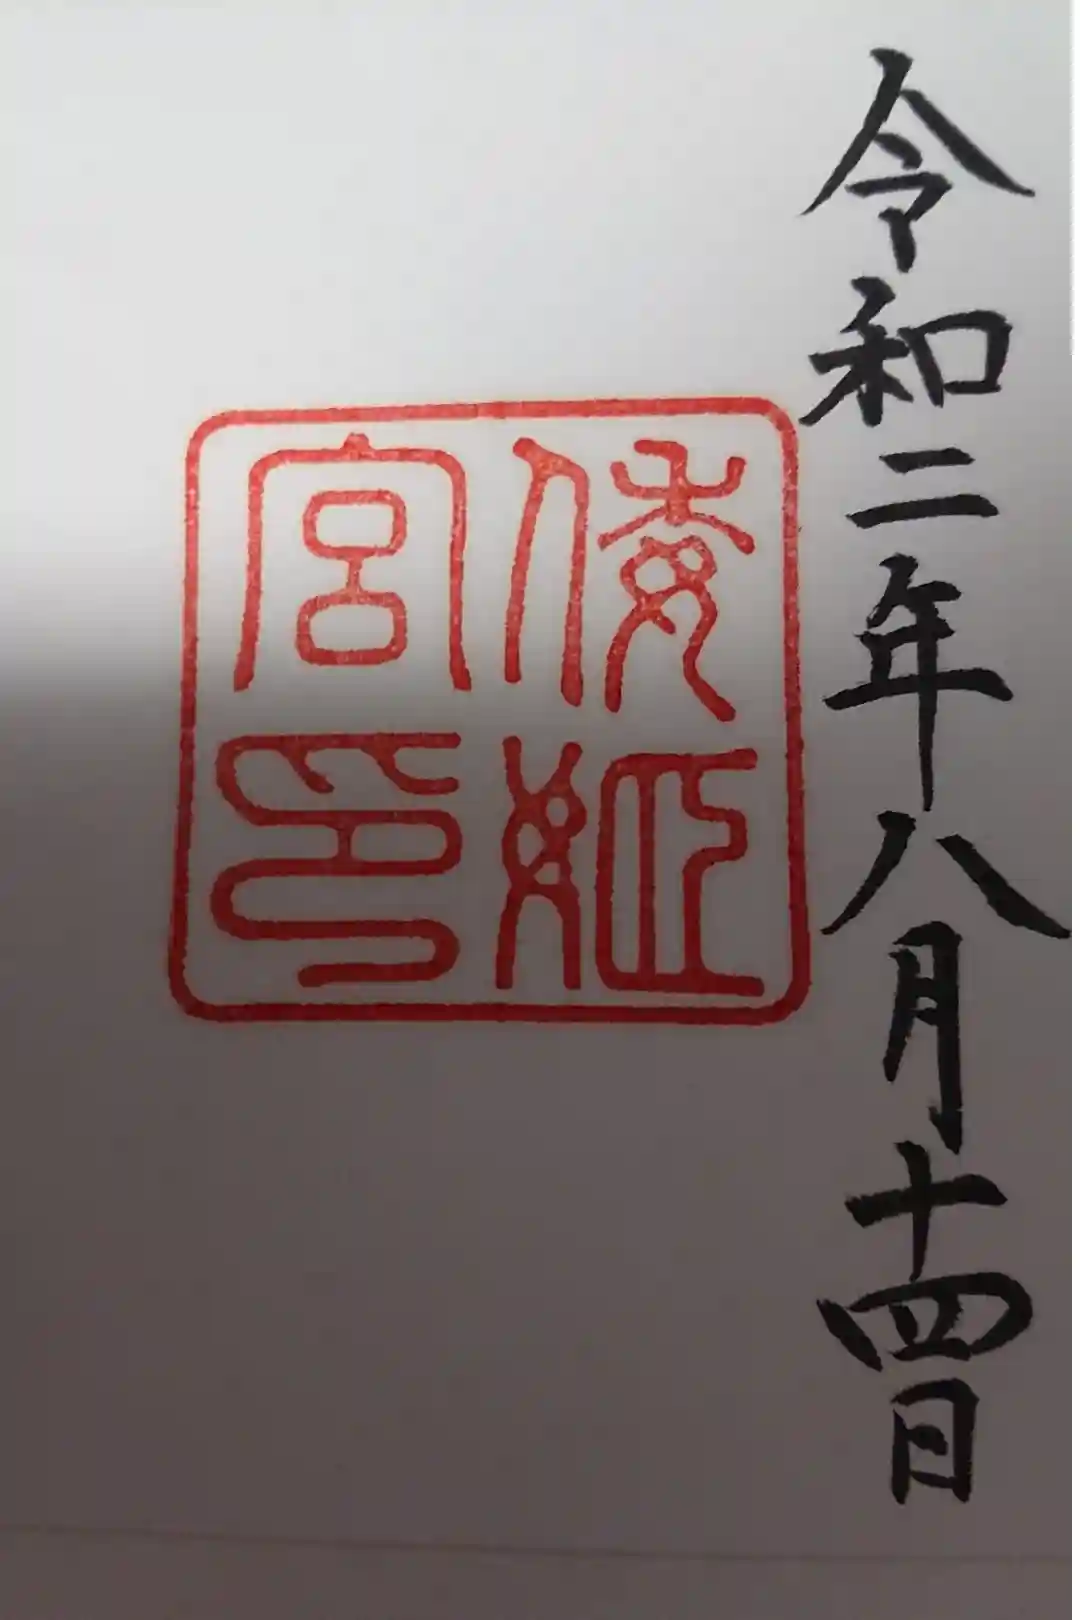 令和二年八月十四日
倭姫
宮印